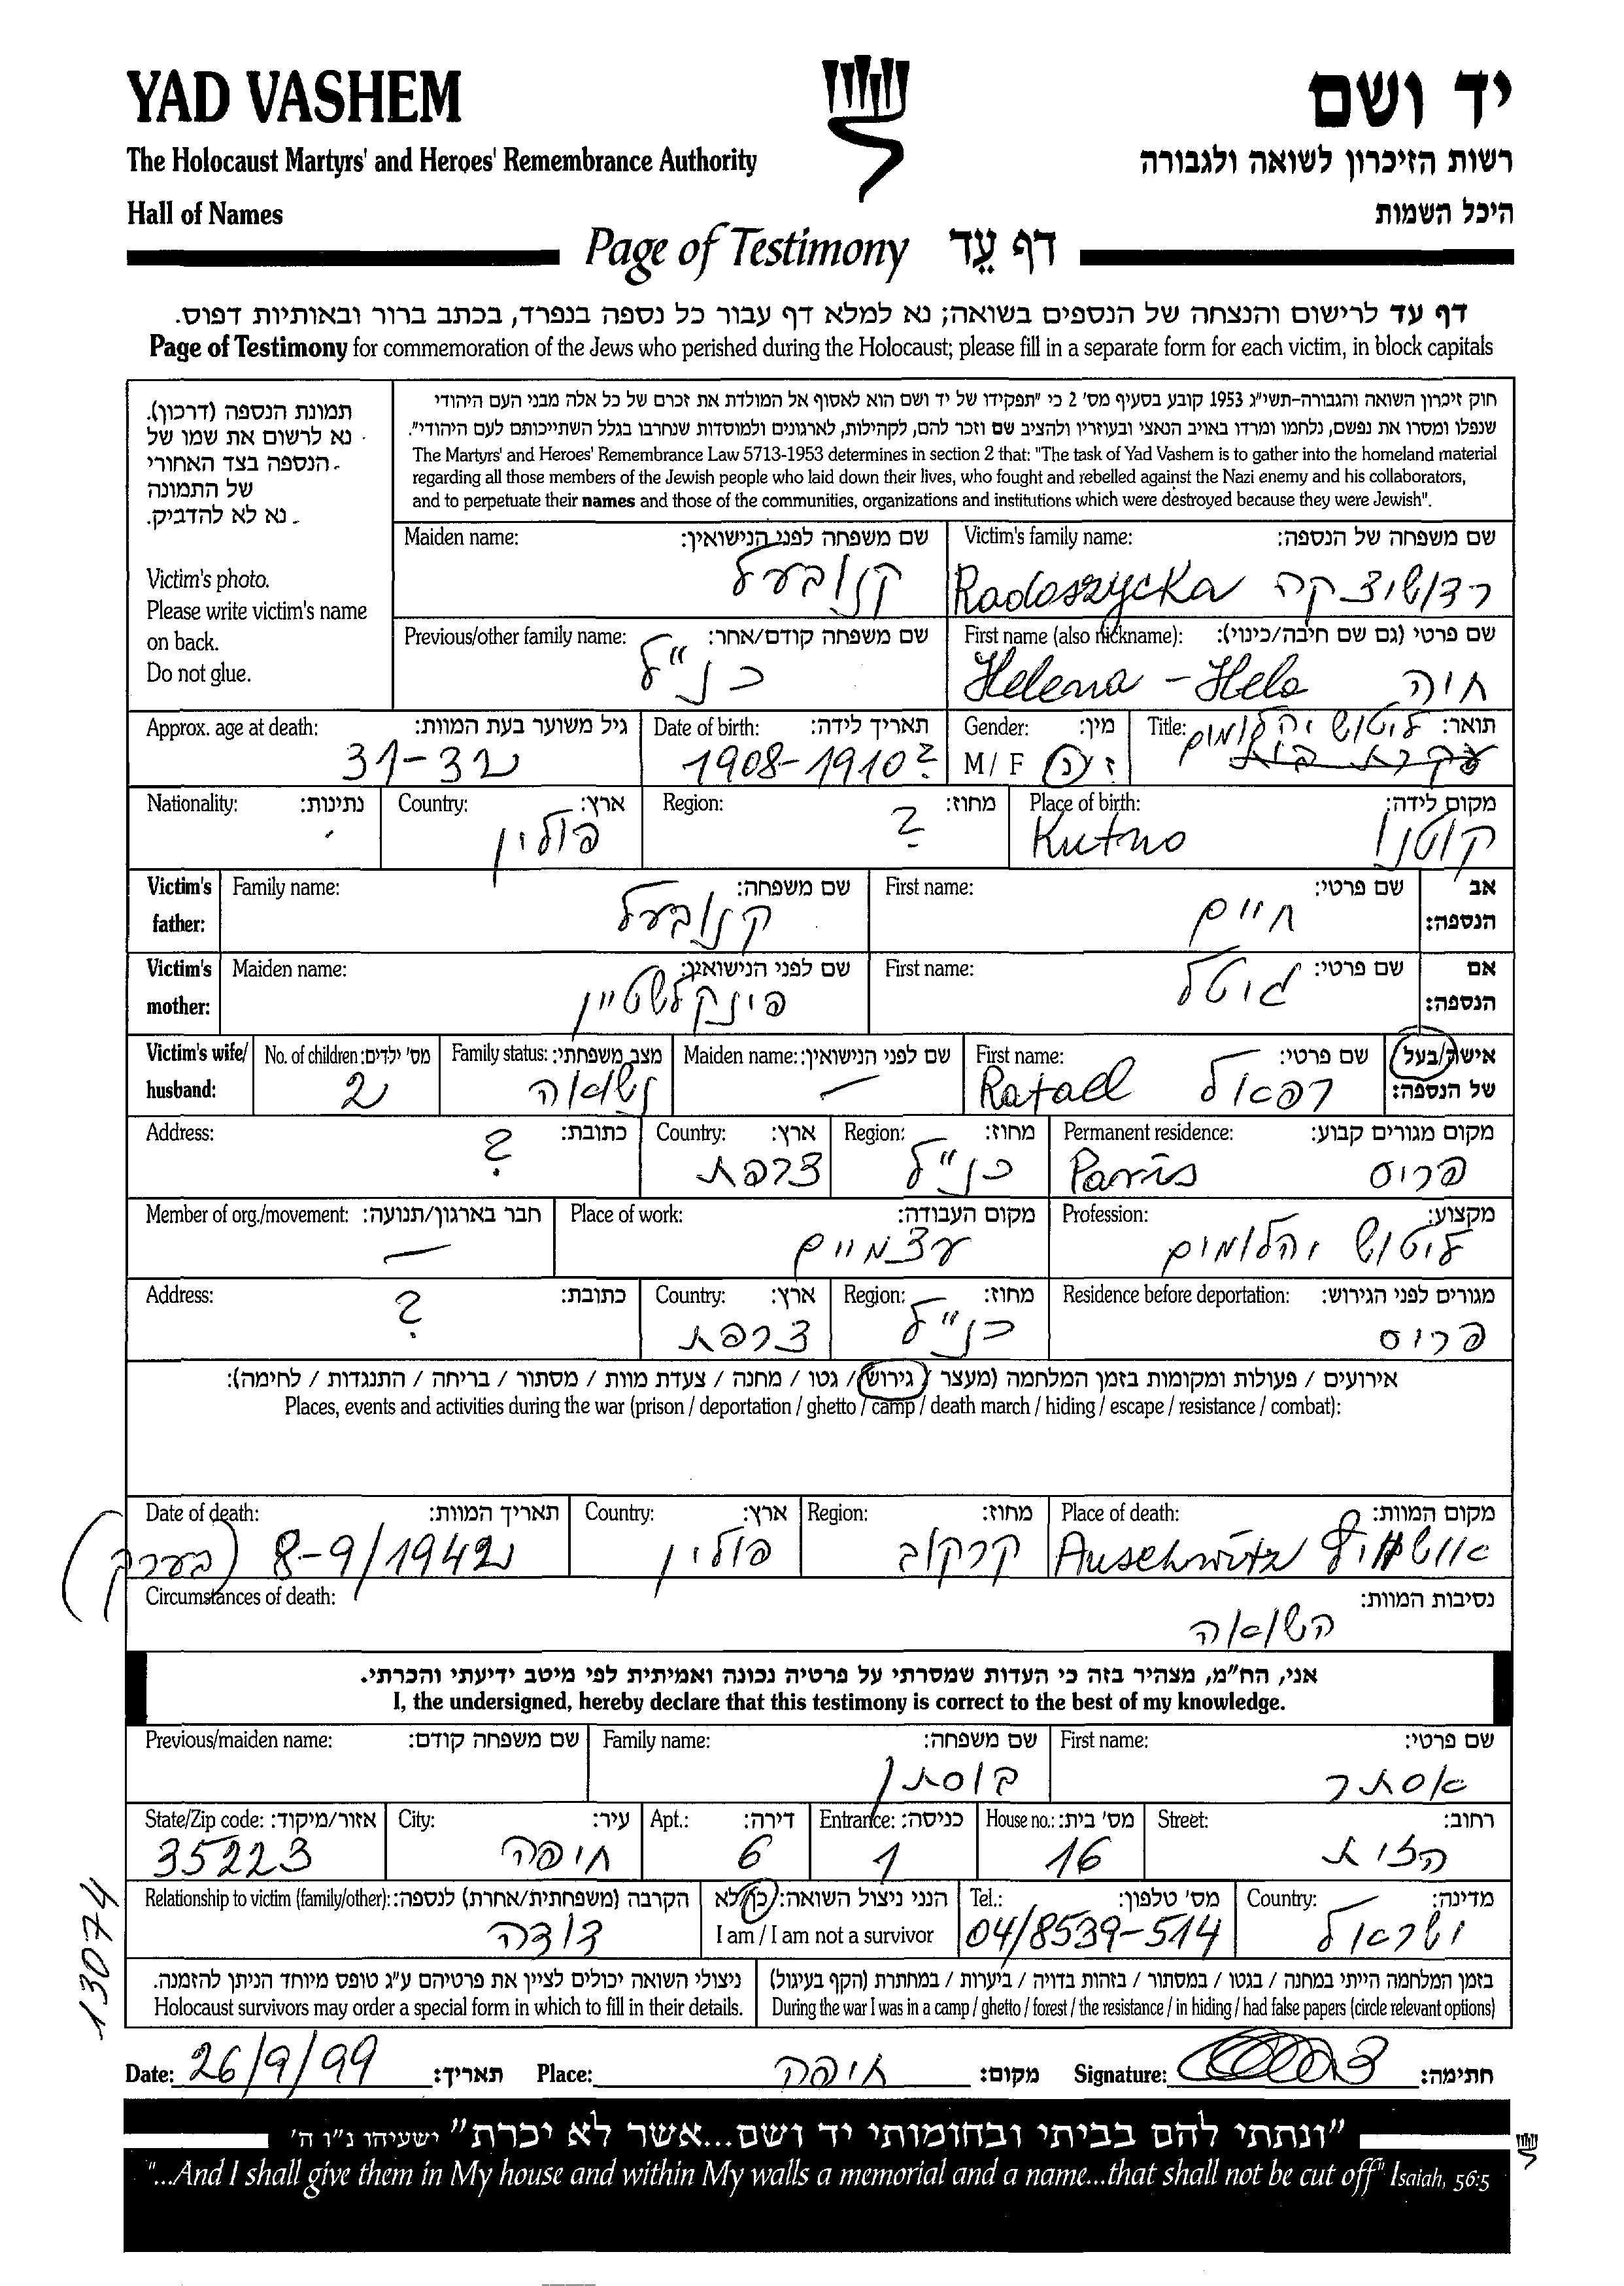 YAD VASHEM
יד ושם
The Holocaust Martyrs' and Heroes' Remembrance Authority
רשות הזיכרון לשואה ולגבורה
Hall of Names
היכל השמות
Page of Testimony דף עֵד
דף עד לרישום והנצחה של הנספים בשואה; נא למלא דף עבור כל נספה בנפרד, בכתב ברור ובאותיות דפוס.
Page of Testimony for commemoration of the Jews who perished during the Holocaust; please fill in a separate form for each victim, in block capitals
תמונת הנספה (דרכון).
נא לרשום את שמו של
הנספה בצד האחורי
של התמונה
נא לא להדביק.
Victim's photo.
Please write victim's name
on back.
Do not glue.
חוק זיכרון השואה והגבורה-תשי"ג 1953 קובע בסעיף מס' 2 כי "תפקידו של יד ושם הוא לאסוף אל המולדת את זכרם של כל אלה מבני העם היהודי
שנפלו ומסרו את נפשם, נלחמו ומרדו באויב הנאצי ובעוזריו ולהציב שם וזכר להם, לקהילות, לארגונים ולמוסדות שנחרבו בגלל השתייכותם לעם היהודי".
The Martyrs' and Heroes' Remembrance Law 5713-1953 determines in section 2 that: "The task of Yad Vashem is to gather into the homeland material
regarding all those members of the Jewish people who laid down their lives, who fought and rebelled against the Nazi enemy and his collaborators,
and to perpetuate their names and those of the communities, organizations and institutions which were destroyed because they were Jewish".
Victim's family name: שם משפחה של הנספה:
Radoszycka רדושיצקה
Maiden name: שם משפחה לפני הנישואין:
קנובעל
First name (also nickname): שם פרטי (גם שם חיבה/כינוי):
Helena - Hela חיה
Previous/other family name: שם משפחה קודם/אחר:
כנ"ל
Title: תואר:
ליטוש יהלומים
Gender: מין:
M / F ז / נ
Date of birth: תאריך לידה:
1908-1910?
Approx. age at death: גיל משוער בעת המוות:
31-32
Place of birth: מקום לידה:
Kutno קוטנו
Region: מחוז:
?
Country: ארץ:
פולין
Nationality: נתינות:
Victim's father: אב הנספה:
First name: שם פרטי:
חיים
Family name: שם משפחה:
קנובעל
Victim's mother: אם הנספה:
First name: שם פרטי:
גיטל
Maiden name: שם לפני הנישואין:
פינקלשטיין
Victim's wife/ husband: אישה/בעל של הנספה:
First name: שם פרטי:
Rafael רפאל
Maiden name: שם לפני הנישואין:
—
Family status: מצב משפחתי:
נשואה
No. of children: מס' ילדים:
2
Permanent residence: מקום מגורים קבוע:
Paris פריס
Region: מחוז:
כנ"ל
Country: ארץ:
צרפת
Address: כתובת:
?
Profession: מקצוע:
ליטוש יהלומים
Place of work: מקום העבודה:
עצמיים
Member of org./movement: חבר בארגון/תנועה:
—
Residence before deportation: מגורים לפני הגירוש:
פריס
Region: מחוז:
כנ"ל
Country: ארץ:
צרפת
Address: כתובת:
?
אירועים / פעולות ומקומות בזמן המלחמה (מעצר / גירוש / גטו / מחנה / צעדת מוות / מסתור / בריחה / התנגדות / לחימה):
Places, events and activities during the war (prison / deportation / ghetto / camp / death march / hiding / escape / resistance / combat):
Place of death: מקום המוות:
Auschwitz
Region: מחוז:
קרקוב
Country: ארץ:
פולין
Date of death: תאריך המוות:
8-9/1942 (בערך)
Circumstances of death: נסיבות המוות:
השואה
אני, הח"מ, מצהיר בזה כי העדות שמסרתי על פרטיה נכונה ואמיתית לפי מיטב ידיעתי והכרתי.
I, the undersigned, hereby declare that this testimony is correct to the best of my knowledge.
First name: שם פרטי:
אסתר
Family name: שם משפחה:
בוסתן
Previous/maiden name: שם משפחה קודם:
Street: רחוב:
הזית
House no.: מס' בית:
16
Entrance: כניסה:
1
Apt.: דירה:
6
City: עיר:
חיפה
State/Zip code: אזור/מיקוד:
35223
Country: מדינה:
ישראל
Tel.: מס' טלפון:
04/8539-514
הנני ניצול השואה: כן/לא
I am / I am not a survivor
Relationship to victim (family/other): הקרבה (משפחתית/אחרת) לנספה:
דודה
13074
בזמן המלחמה הייתי במחנה / בגטו / במסתור / בזהות בדויה / ביערות / במחתרת (הקף בעיגול)
During the war I was in a camp / ghetto / forest / the resistance / in hiding / had false papers (circle relevant options)
ניצולי השואה יכולים לציין את פרטיהם ע"ג טופס מיוחד הניתן להזמנה.
Holocaust survivors may order a special form in which to fill in their details.
Date: 26/9/99 תאריך: Place: חיפה מקום: Signature: חתימה:
"ונתתי להם בביתי ובחומותי יד ושם...אשר לא יכרת" ישעיהו נ"ו ה'
"...And I shall give them in My house and within My walls a memorial and a name...that shall not be cut off" Isaiah, 56:5